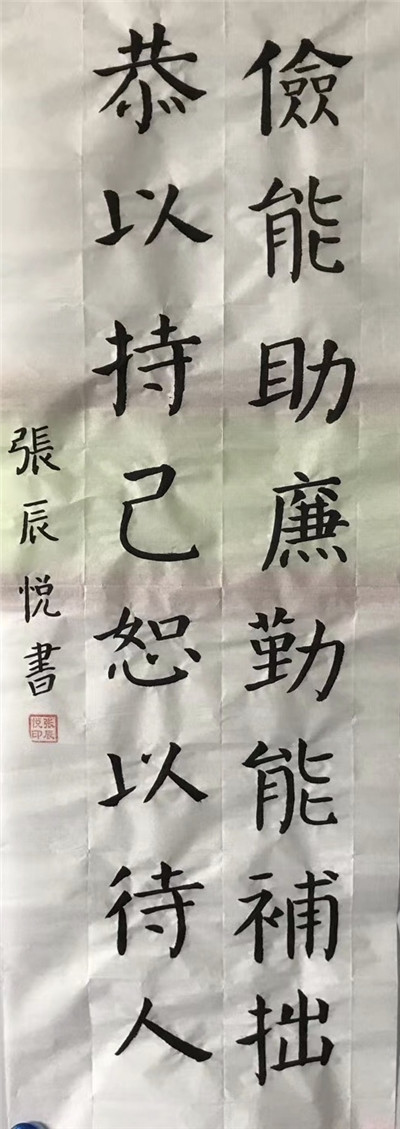 儉能助廉勤能補拙
恭以持己恕以待人
張辰悦書
張辰悦印